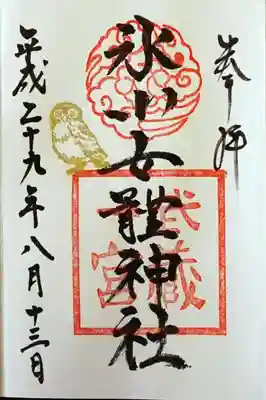 奉拝
氷川女體神社
武蔵
一宮
平成二十九年八月十三日